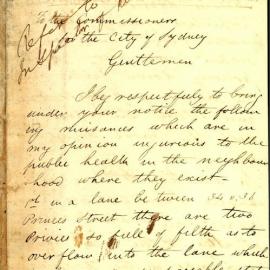 Refer to
Inspector
To the Commissioners
for the City of Sydney
Gentlemen
I beg respectfully to bring
under your notice the follow
ing nuisances which are in
my opinion injurious to the
public health in the neighbour
hood where they exist
in a lane between 34 & 36
Princes Street there are two
Privies so full of filth as to
overflow into the lane which